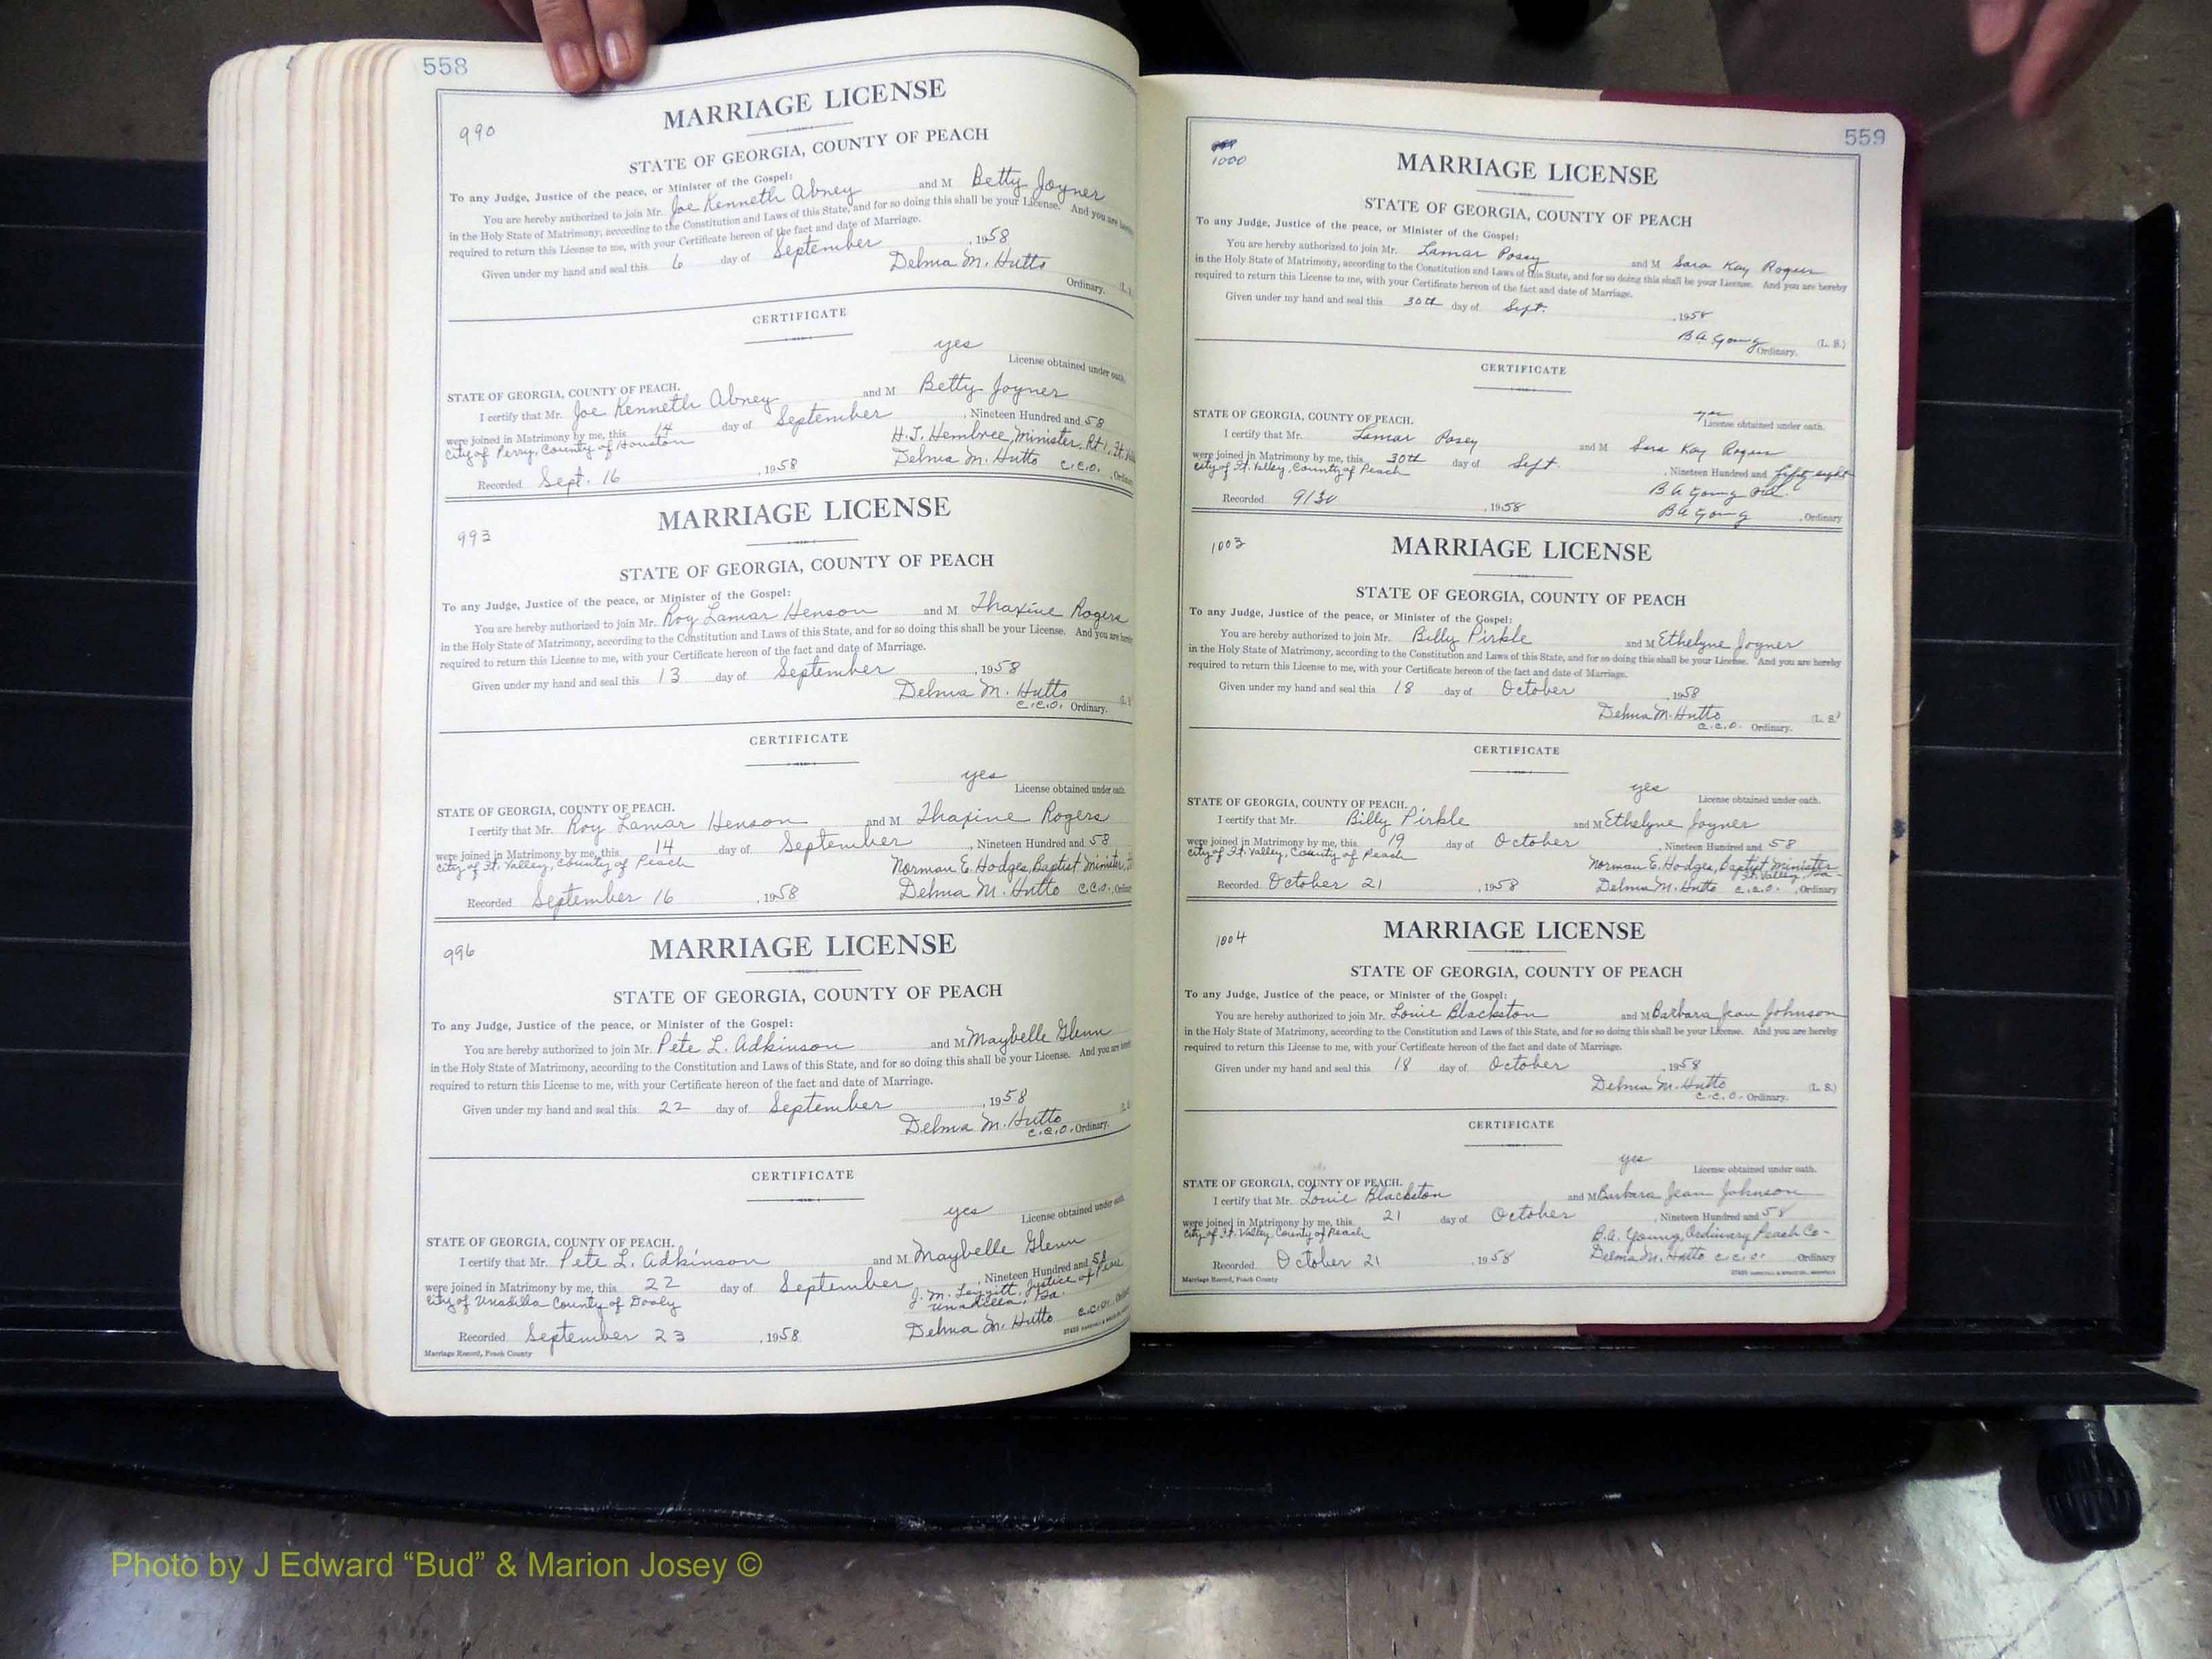 558
990
MARRIAGE LICENSE
STATE OF GEORGIA, COUNTY OF PEACH
To any Judge, Justice of the peace, or Minister of the Gospel:
You are hereby authorized to join Mr. Joe Kenneth Abney and M Betty Joyner
in the Holy State of Matrimony, according to the Constitution and Laws of this State, and for so doing this shall be your License. And you are hereby
required to return this License to me, with your Certificate hereon of the fact and date of Marriage.
Given under my hand and seal this 6 day of September, 1958
Delma M. Hutto
Ordinary. (L.
CERTIFICATE
yes
License obtained under oath.
STATE OF GEORGIA, COUNTY OF PEACH.
I certify that Mr. Joe Kenneth Abney and M Betty Joyner
were joined in Matrimony by me, this 14 day of September, Nineteen Hundred and 58
City of Perry, County of Houston H.J. Hembree, Minister, Rt 1, Ft.
Delma M. Hutto c.c.o.
Recorded Sept. 16, 1958
993
MARRIAGE LICENSE
STATE OF GEORGIA, COUNTY OF PEACH
To any Judge, Justice of the peace, or Minister of the Gospel:
You are hereby authorized to join Mr. Roy Lamar Henson and M Thaxine Rogers
in the Holy State of Matrimony, according to the Constitution and Laws of this State, and for so doing this shall be your License. And you are
required to return this License to me, with your Certificate hereon of the fact and date of Marriage.
Given under my hand and seal this 13 day of September, 1958
Delma M. Hutto
c.c.o. Ordinary.
CERTIFICATE
yes
License obtained under oath.
STATE OF GEORGIA, COUNTY OF PEACH.
I certify that Mr. Roy Lamar Henson and M Thaxine Rogers
were joined in Matrimony by me, this 14 day of September, Nineteen Hundred and 58
City of Ft. Valley, County of Peach Norman E. Hodges, Baptist Minister,
Recorded September 16, 1958 Delma M. Hutto c.c.o.
996
MARRIAGE LICENSE
STATE OF GEORGIA, COUNTY OF PEACH
To any Judge, Justice of the peace, or Minister of the Gospel:
You are hereby authorized to join Mr. Pete L. Adkinson and M Maybelle Glenn
in the Holy State of Matrimony, according to the Constitution and Laws of this State, and for so doing this shall be your License. And you are
required to return this License to me, with your Certificate hereon of the fact and date of Marriage.
Given under my hand and seal this 22 day of September, 1958
Delma M. Hutto
c.c.o. Ordinary.
CERTIFICATE
yes
License obtained under oath
STATE OF GEORGIA, COUNTY OF PEACH.
I certify that Mr. Pete L. Adkinson and M Maybelle Glenn
were joined in Matrimony by me, this 22 day of September, Nineteen Hundred and 58
City of Unadilla County of Dooly J.M. Leggitt, Justice of Peace
Unadilla, Ga.
Recorded September 23, 1958 Delma M. Hutto c.c.o.
Marriage Record, Peach County
559
1000
MARRIAGE LICENSE
STATE OF GEORGIA, COUNTY OF PEACH
To any Judge, Justice of the peace, or Minister of the Gospel:
You are hereby authorized to join Mr. Lamar Posey and M Sara Kay Rogers
in the Holy State of Matrimony, according to the Constitution and Laws of this State, and for so doing this shall be your License. And you are hereby
required to return this License to me, with your Certificate hereon of the fact and date of Marriage.
Given under my hand and seal this 30th day of Sept., 1958
B A Young (L. S.)
Ordinary.
CERTIFICATE
yes
License obtained under oath.
STATE OF GEORGIA, COUNTY OF PEACH.
I certify that Mr. Lamar Posey and M Sara Kay Rogers
were joined in Matrimony by me, this 30th day of Sept., Nineteen Hundred and fifty eight
City of Ft. Valley, County of Peach B A Young Ord.
Recorded 9/30, 1958 B A Young, Ordinary
1003
MARRIAGE LICENSE
STATE OF GEORGIA, COUNTY OF PEACH
To any Judge, Justice of the peace, or Minister of the Gospel:
You are hereby authorized to join Mr. Billy Pirkle and M Ethelyne Joyner
in the Holy State of Matrimony, according to the Constitution and Laws of this State, and for so doing this shall be your License. And you are hereby
required to return this License to me, with your Certificate hereon of the fact and date of Marriage.
Given under my hand and seal this 18 day of October, 1958
Delma M. Hutto (L. S.)
c.c.o. Ordinary.
CERTIFICATE
yes
License obtained under oath.
STATE OF GEORGIA, COUNTY OF PEACH.
I certify that Mr. Billy Pirkle and M Ethelyne Joyner
were joined in Matrimony by me, this 19 day of October, Nineteen Hundred and 58
City of Ft. Valley, County of Peach Norman E. Hodges, Baptist Minister
Ft. Valley, Ga.
Recorded October 21, 1958 Delma M. Hutto c.c.o., Ordinary
1004
MARRIAGE LICENSE
STATE OF GEORGIA, COUNTY OF PEACH
To any Judge, Justice of the peace, or Minister of the Gospel:
You are hereby authorized to join Mr. Louie Blackston and M Barbara Jean Johnson
in the Holy State of Matrimony, according to the Constitution and Laws of this State, and for so doing this shall be your License. And you are hereby
required to return this License to me, with your Certificate hereon of the fact and date of Marriage.
Given under my hand and seal this 18 day of October, 1958
Delma M. Hutto (L. S.)
c.c.o. Ordinary.
CERTIFICATE
yes
License obtained under oath.
STATE OF GEORGIA, COUNTY OF PEACH.
I certify that Mr. Louie Blackston and M Barbara Jean Johnson
were joined in Matrimony by me, this 21 day of October, Nineteen Hundred and 58
City of Ft. Valley, County of Peach B.A. Young, Ordinary Peach Co-
Delma M. Hutto c.c.o. Ordinary
Recorded October 21, 1958
Marriage Record, Peach County
Photo by J Edward “Bud” & Marion Josey ©